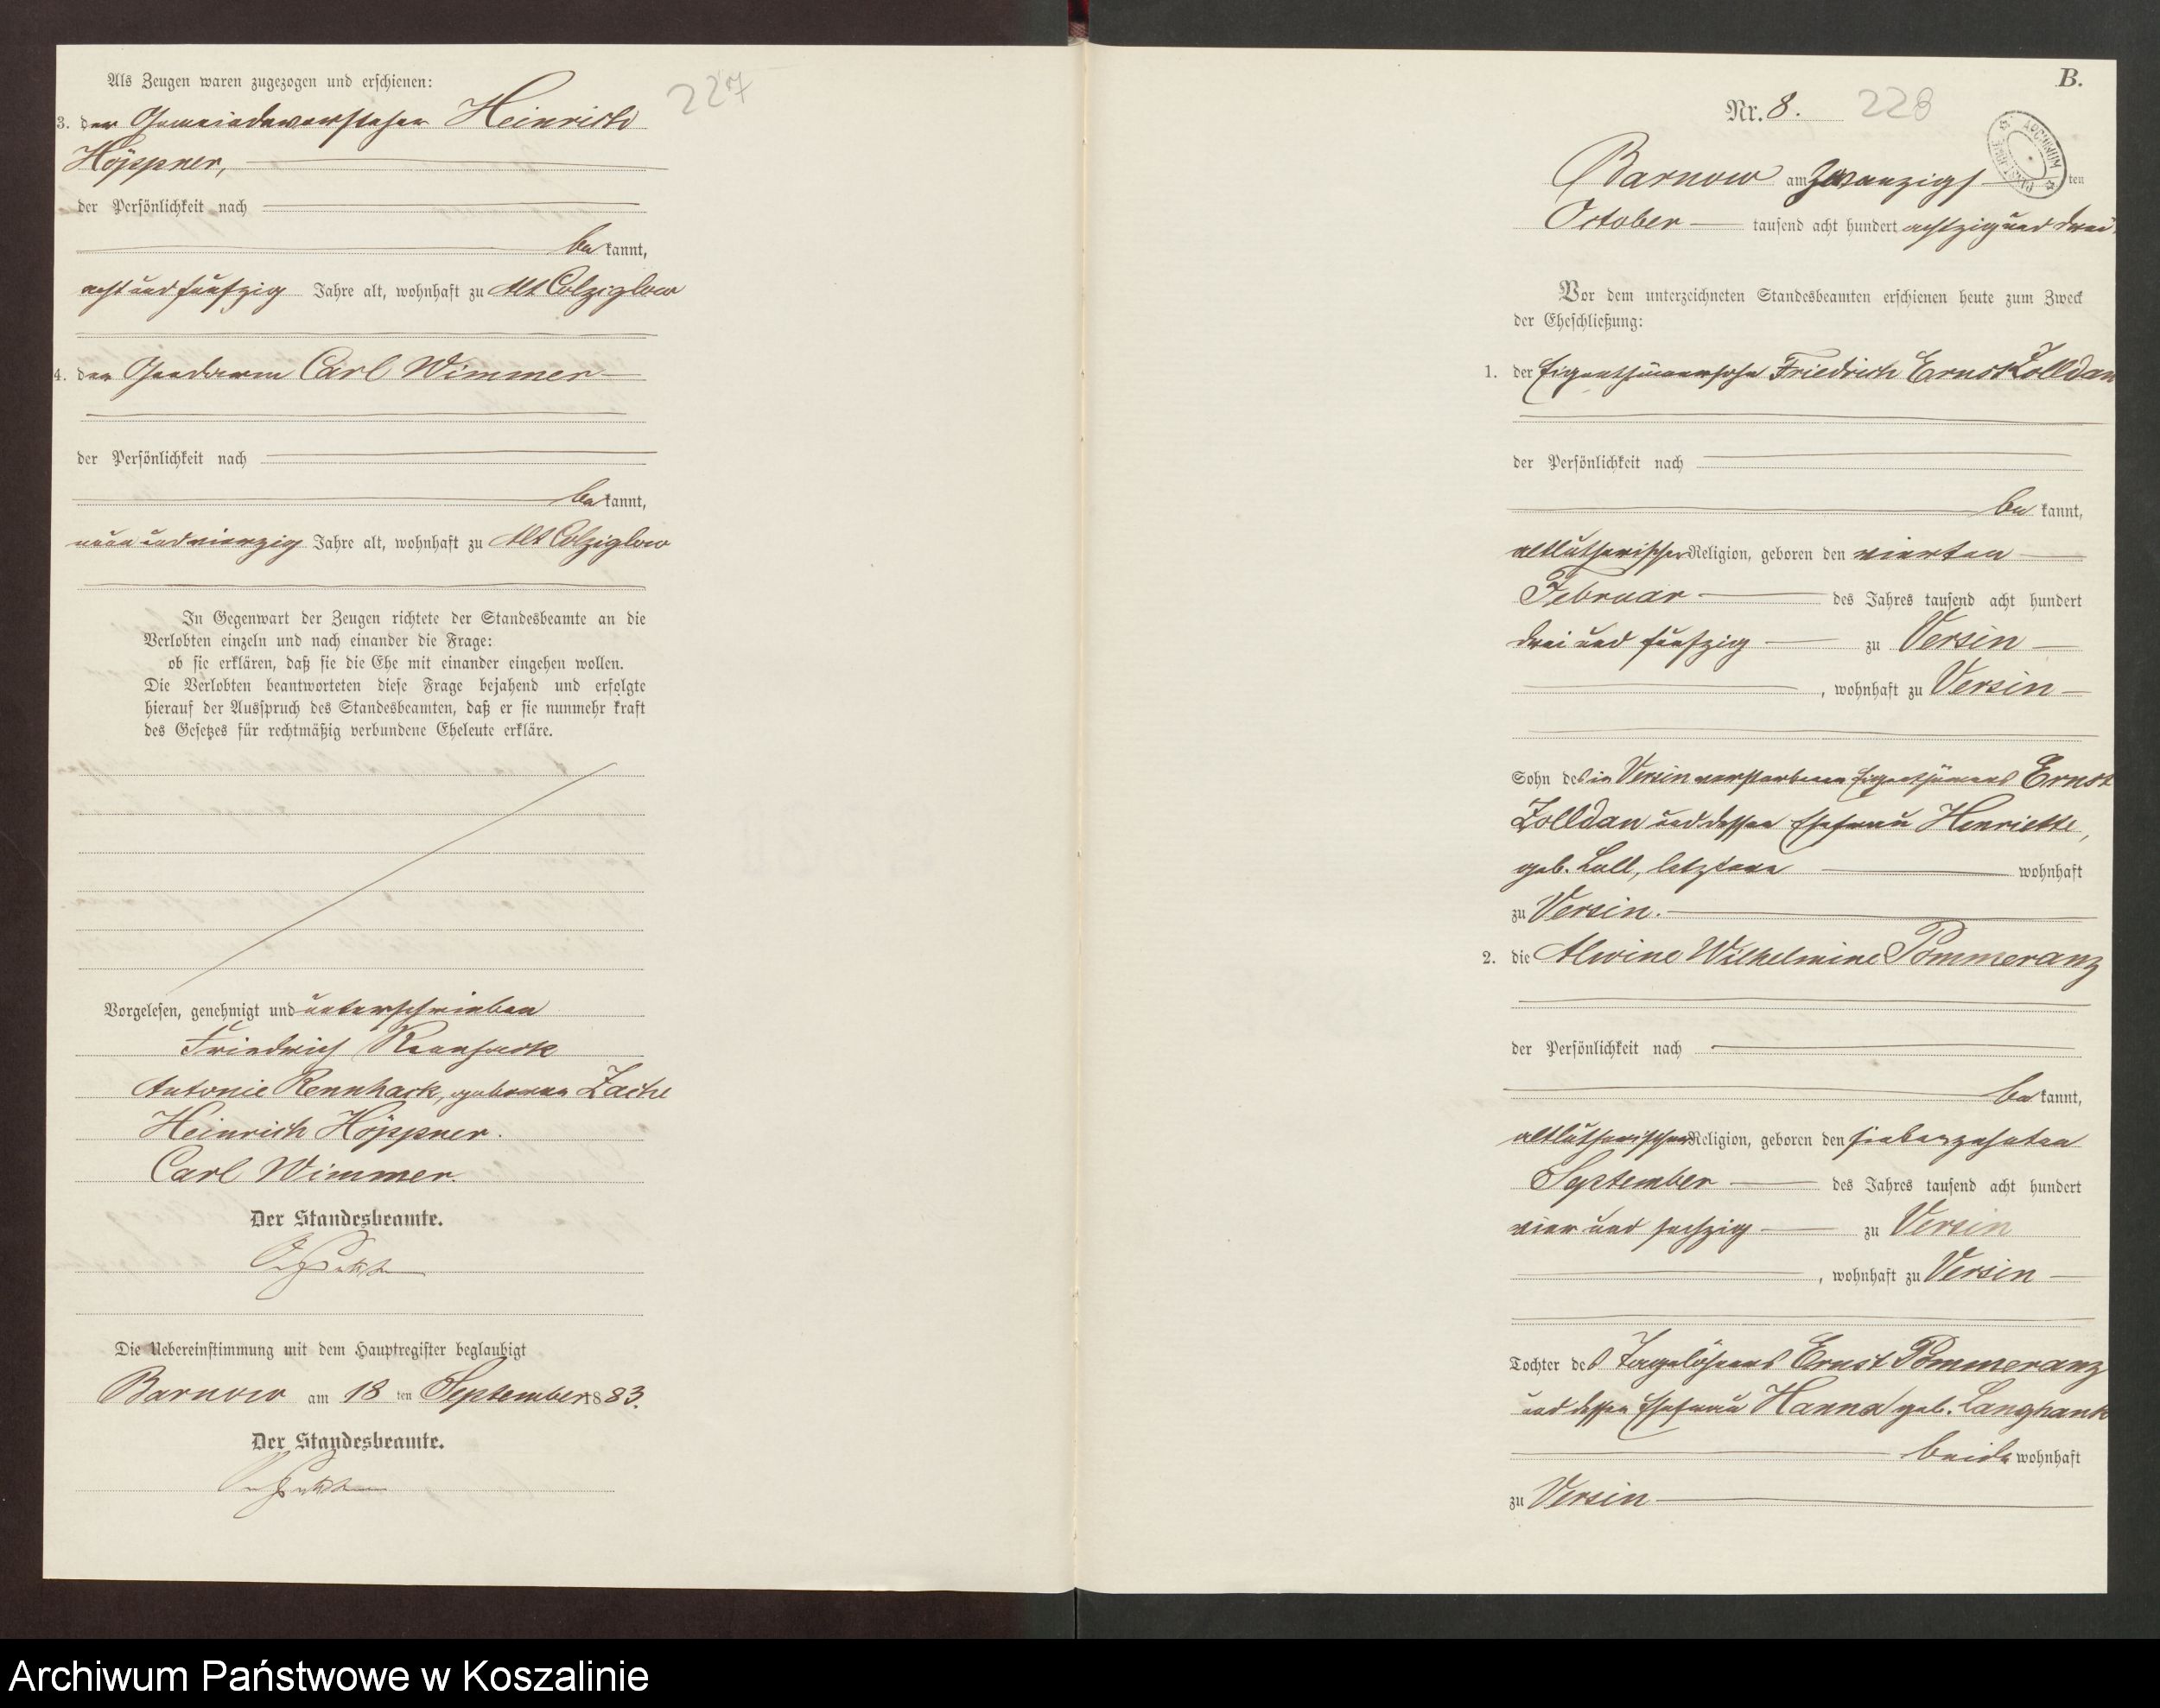 Als Zeugen waren zugezogen und erschienen:
227
3. der Gemeindevorsteher Heinrich
Höppner,
der Persönlichkeit nach
be kannt,
acht und fünfzig Jahre alt, wohnhaft zu Alt Colziglow
4. der Gendarm Carl Wimmer
der Persönlichkeit nach
be kannt,
neun und vierzig Jahre alt, wohnhaft zu Alt Colziglow
In Gegenwart der Zeugen richtete der Standesbeamte an die
Verlobten einzeln und nach einander die Frage:
ob sie erklären, daß sie die Ehe mit einander eingehen wollen.
Die Verlobten beantworteten diese Frage bejahend und erfolgte
hierauf der Ausspruch des Standesbeamten, daß er sie nunmehr kraft
des Gesetzes für rechtmäßig verbundene Eheleute erkläre.
Vorgelesen, genehmigt und unterschrieben
Friedrich Rennhack
Antonie Rennhack, geborene Zache
Heinrich Höppner.
Carl Wimmer.
Der Standesbeamte.
Die Uebereinstimmung mit dem Hauptregister beglaubigt
Barnow am 18 ten September 1883.
Der Standesbeamte.
B.
Nr. 8. 228
ARCHIWUM
Barnow am zwanzigs ten
October tausend acht hundert achtzig und drei.
Vor dem unterzeichneten Standesbeamten erschienen heute zum Zweck
der Eheschließung:
1. der Eigenthümersohn Friedrich Ernst Zolldan
der Persönlichkeit nach
be kannt,
altlutherischer Religion, geboren den vierten
Februar des Jahres tausend acht hundert
drei und fünfzig zu Versin
, wohnhaft zu Versin
Sohn des in Versin verstorbenen Eigenthümers Ernst
Zolldan und dessen Ehefrau Henriette,
geb. Lall, letztere wohnhaft
zu Versin.
2. die Alwine Wilhelmine Pommeranz
der Persönlichkeit nach
be kannt,
altlutherischer Religion, geboren den siebenzehnten
September des Jahres tausend acht hundert
vier und sechzig zu Versin
, wohnhaft zu Versin
Tochter des Tagelöhners Ernst Pommeranz
und dessen Ehefrau Hanna geb. Langhank
beide wohnhaft
zu Versin
Archiwum Państwowe w Koszalinie